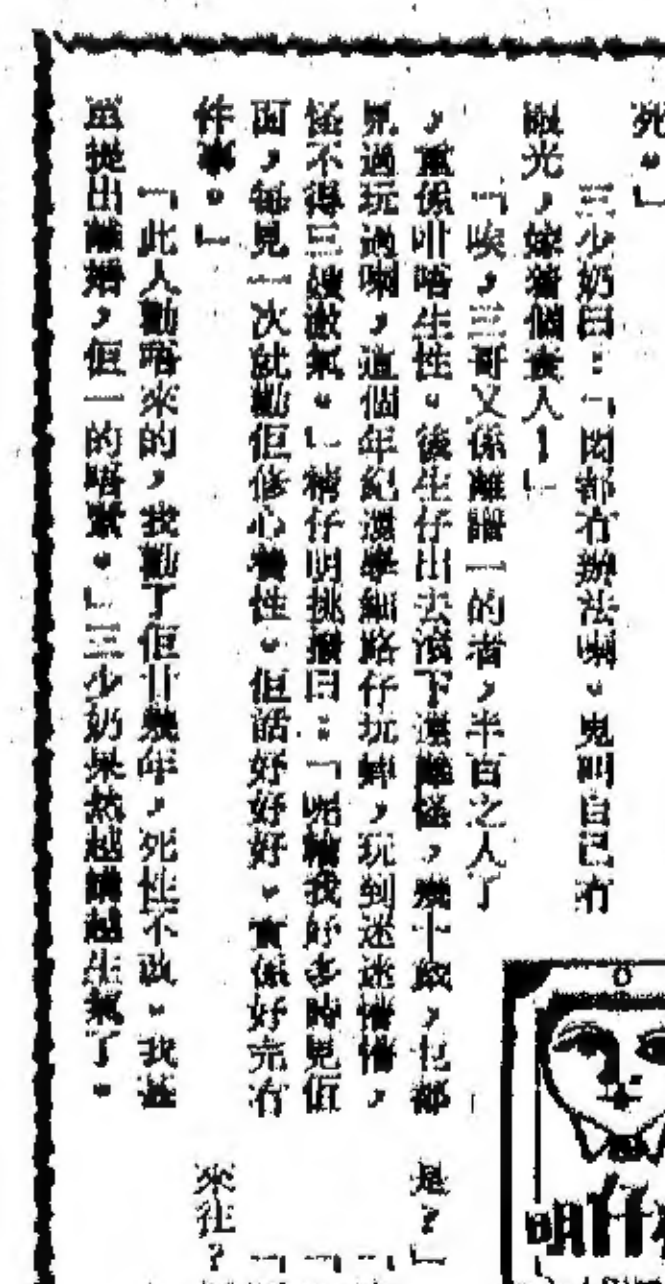 死。」
三少奶曰：「因都冇辦法喇。鬼叫自己冇
眼光，嫁着個壞人！」
「唉，三哥又係離譜一的者，半百之人了
，重係咁唔生性。後生仔出去滾下還難怪，幾十歲，乜都
見過玩過喇，這個年紀還學細路仔玩，玩到迷迷懵懵，
怪不得三嫂激氣。」精仔明挑撥曰：「呢輪我好多時見佢
面，每見一次就勸佢修心養性。佢話好好好。實係好完冇
件事。」
「此人勸唔來的，我勸了佢廿幾年，死性不改。我甚
至提出離婚，佢一的唔驚。」三少奶果然越講越生氣了。
是？」
來往？
明仔精